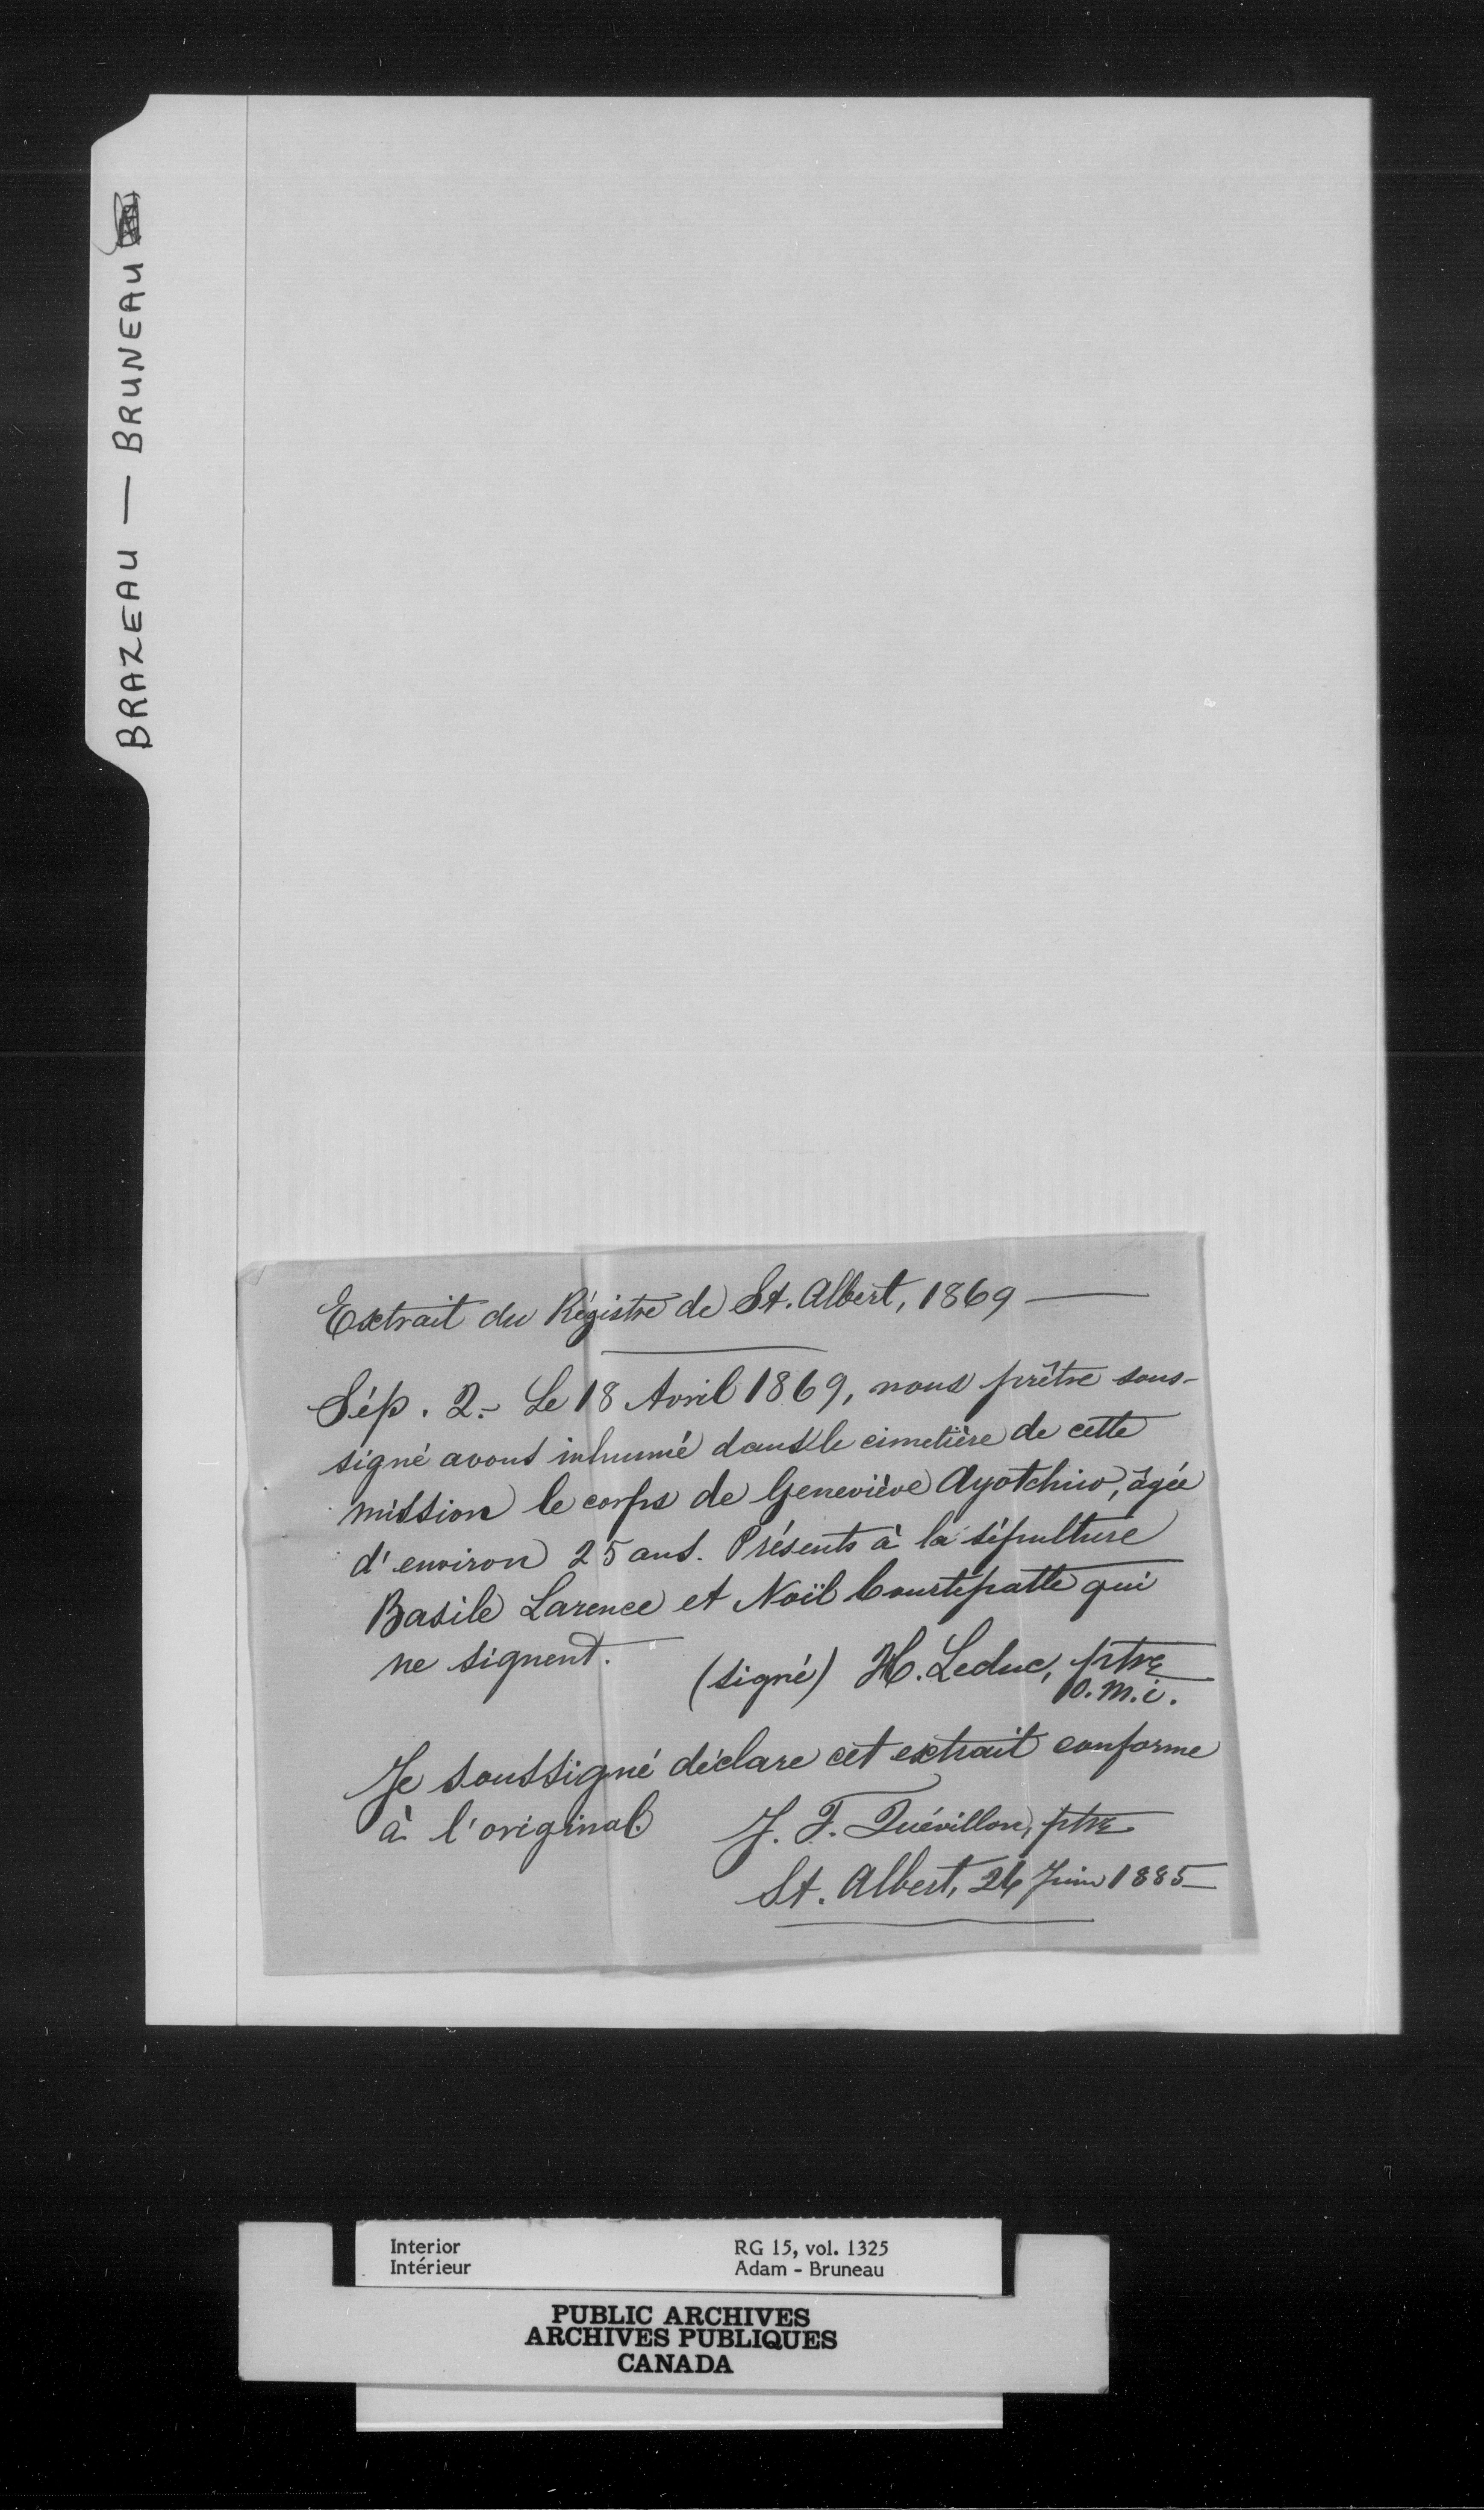 BRAZEAU — BRUNEAU
Extrait du Régistre de St. Albert, 1869 —
Sép. 2.- Le 18 Avril 1869, nous prêtre sous-
signé avons inhumé dans le cimetière de cette
mission le corps de Geneviève Ayotchiw, âgée
d'environ 25 ans. Présents à la sépulture
Basile Larence et Noël Courtepatte qui
ne signent.
(signé) H. Leduc, ptre
o.m.i.
Je soussigné déclare cet extrait conforme
à l'original.
J. F. Quévillon, ptre
St. Albert, 26 Juin 1885
Interior
Intérieur
RG 15, vol. 1325
Adam - Bruneau
PUBLIC ARCHIVES
ARCHIVES PUBLIQUES
CANADA